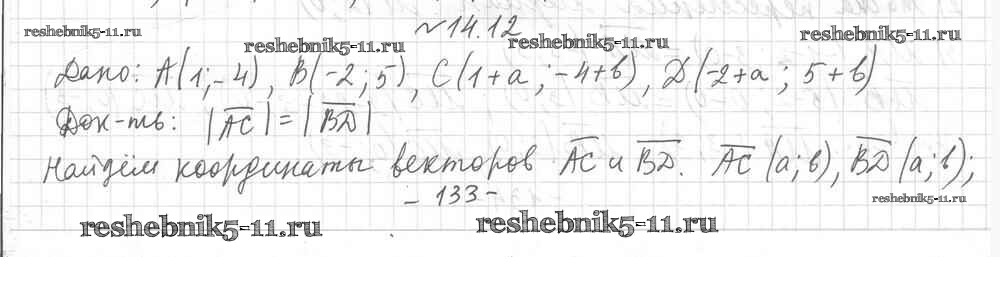 №14.12
reshebnik5-11.ru reshebnik5-11.ru reshebnik5-11.ru reshebnik5-11.ru
Дано: A(1;-4), B(-2;5), C(1+a;-4+b), D(-2+a;5+b)
Док-ть: |AC|=|BD|
Найдём координаты векторов AC и BD. AC(a;b), BD(a;b);
- 133 -
reshebnik5-11.ru
reshebnik5-11.ru reshebnik5-11.ru